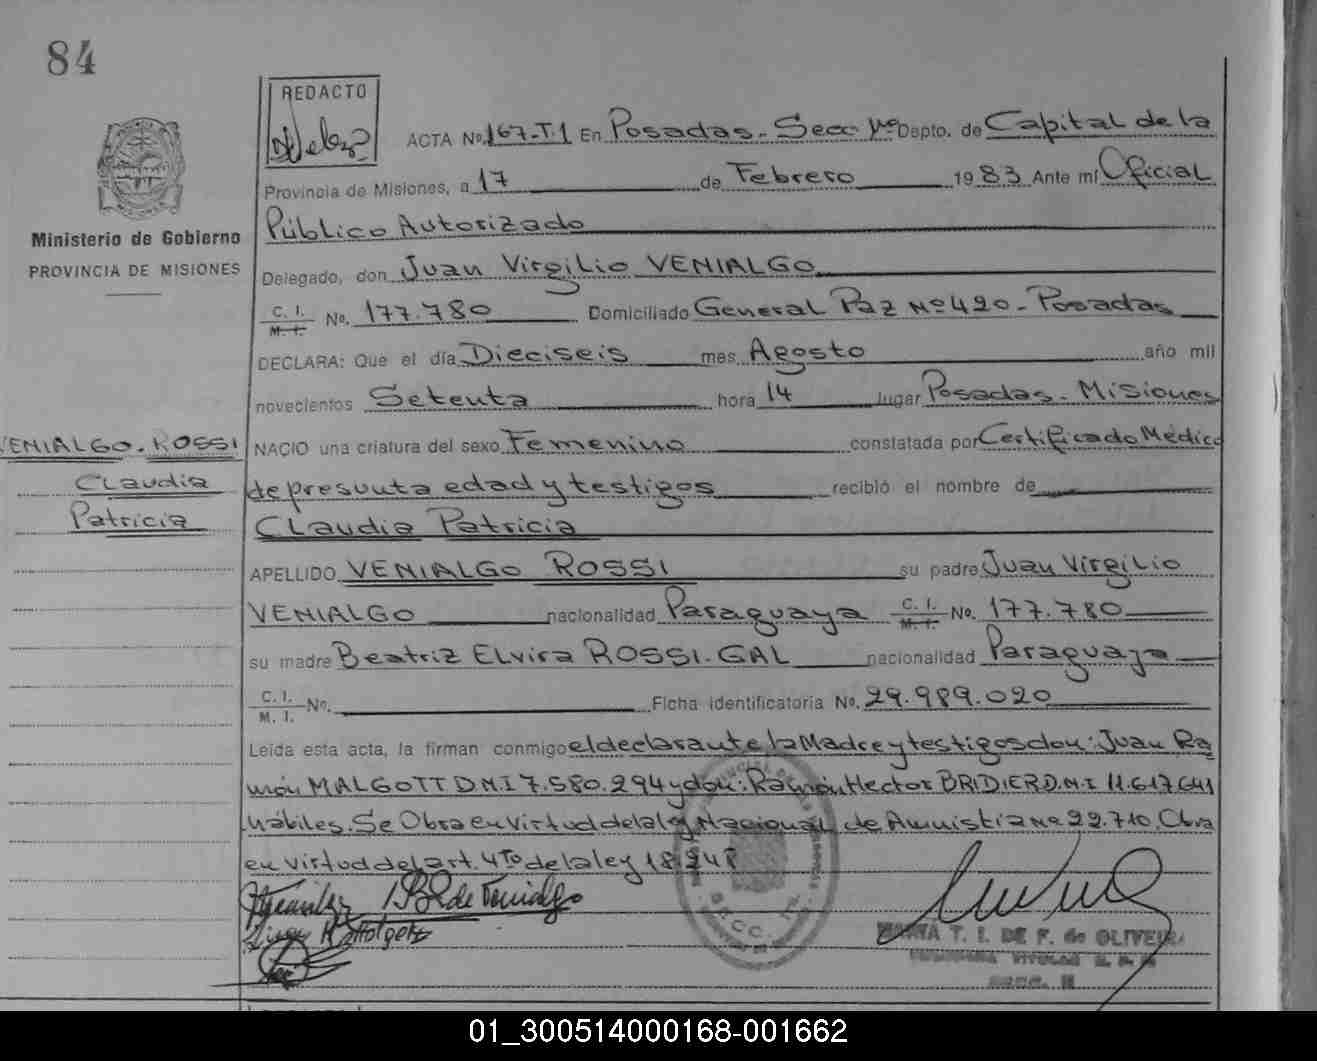 84
REDACTO
ACTA No. 167-T.1 En Posadas - Secc 1ra Depto. de Capital de la
Provincia de Misiones, a 17 de Febrero 1983 Ante mí Oficial
Público Autorizado
Ministerio de Gobierno
PROVINCIA DE MISIONES
Delegado, don Juan Virgilio VENIALGO
C. I. M. I. No. 177.780 Domiciliado General Paz Nº 420 - Posadas
DECLARA: Que el día Dieciseis mes Agosto año mil
novecientos Setenta hora 14 lugar Posadas - Misiones
VENIALGO - ROSSI
Claudia
Patricia
NACIO una criatura del sexo Femenino constatada por Certificado Médico
de presunta edad y testigos recibió el nombre de
Claudia Patricia
APELLIDO VENIALGO ROSSI su padre Juan Virgilio
VENIALGO nacionalidad Paraguaya C. I. M. I. No. 177.780
su madre Beatriz Elvira ROSSI - GAL nacionalidad Paraguaya
C. I. M. I. No. Ficha identificatoria No. 29.989.020
Leída esta acta, la firman conmigo el declarante la Madre y testigos don: Juan Ra
món MALGOTT D.N.I 7.580.294 y don: Ramón Hector BRIDIER D.N.I 11.617.641
hábiles. Se Obra en virtud de la ley Nacional de Amnistia Nº 22.710. Obra
en virtud del art. 4to de la ley 18.248
BR de Venialgo
MARTA T. I. DE F. de OLIVEIRA
SECC. 
01_300514000168-001662